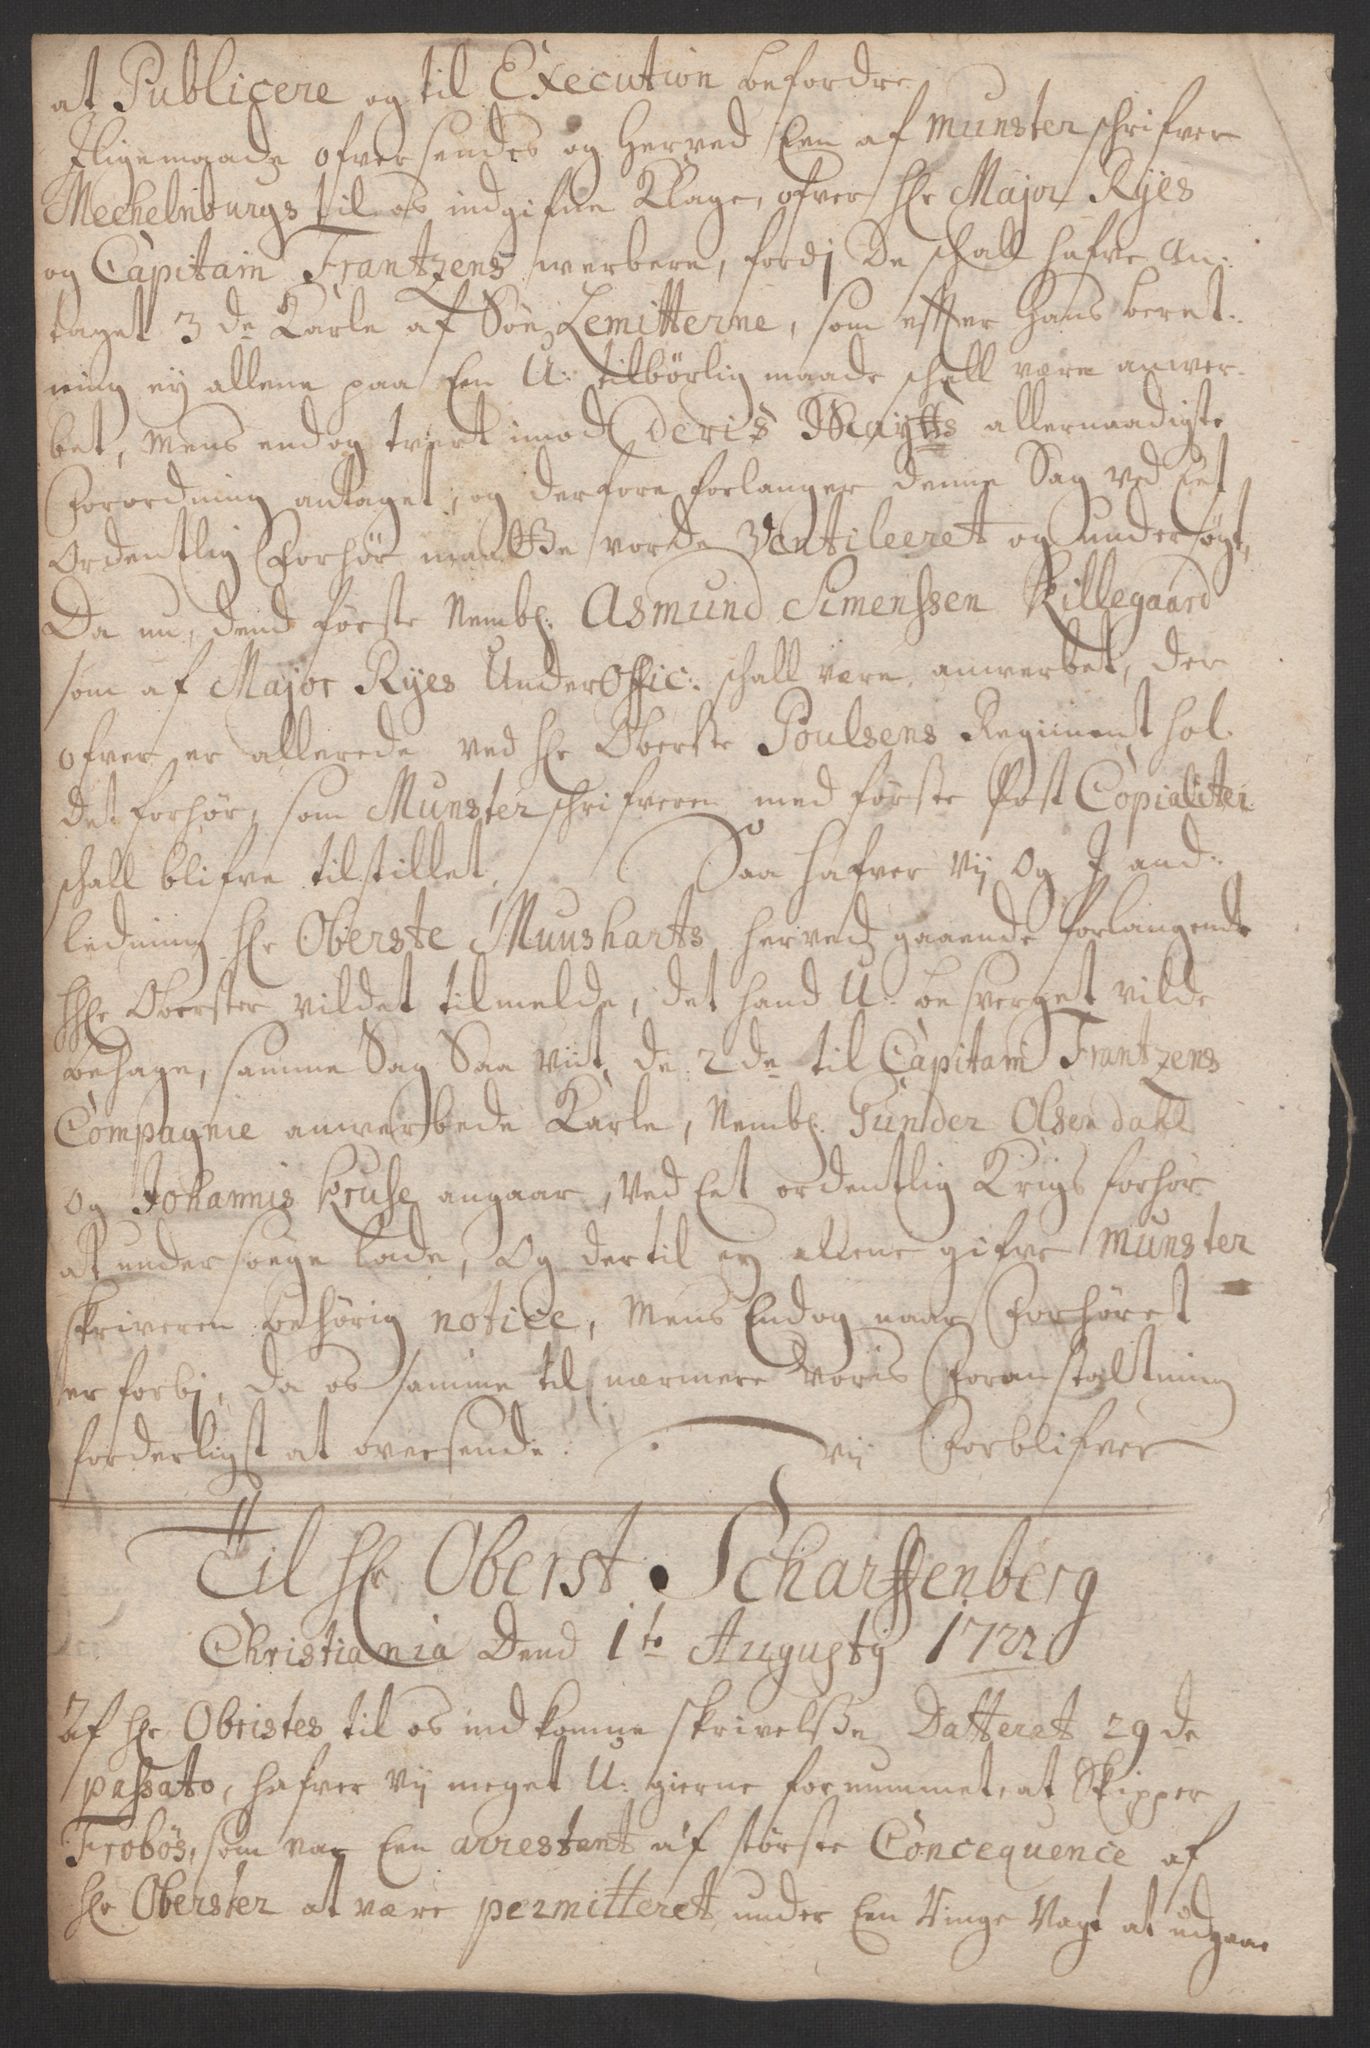 at Publicere og til Execution befordre
Iligemaade ofversendes og herved Een af Munsterschrifver
Mechelnburgs til os indgifne Klage, ofver hr Major Ryes
og Capitain Frantzens werbere, fordi De schall hafve an-
taget 3de Karle af Söe Lemitterne, som efter hans beret-
ning ey allene paa Een U: tilbörlig maade schall være anwer-
bet, Mens endog tvert imod Deris Maytts allernaadigste
Forordning antaget, og derfore forlanger denne Sag ved Et
Ordentlig Forhör maatte vorde Ventileeret og undersögt,
Da nu, dend förste Nembl: Asmund Simenssen Killegaard
som af Major Ryes UnderOffic: schall være anwerbet, der
ofver er allerede ved hr Oberste Poulsens Regiment hol-
det forhör, som Munsterschrifveren med förste Post Copialiter
schall blifve tilstillet, Saa hafver Vy Og I and-
ledning hr Oberste Muusharts herved gaaende forlangende
hr Oberster vildet tilmelde, det hand U: besverget vilde
behage, samme Sag Saa viit, de 2de til Capitain Frantzens
Compagnie anwerbede Karle, Nembl: Gunder Olsen dahl
og Johannis Kruse angaar, Ved Eet ordentlig Krigs forhör
at undersöege lade, Og dertil ey allene gifve Munster
skriveren behörig notice, Mens Endog naar Forhöret
er forbi, da os samme til nærmere Voris Foranstaltning
forderligst at oversende. Vy Forblifver
Til hr Oberst Scharffenberg
Christiania Dend 1te Augusty 1721
Af hr Obristes til os indkomne skrivelsse Datteret 29de
passato, hafver Vy meget U: gierne fornummet, at Skipper
Frobös, som var Een arrestent af störste Concequence af
hr Oberster at være permitteret under Een ringe Vagt at udgaae